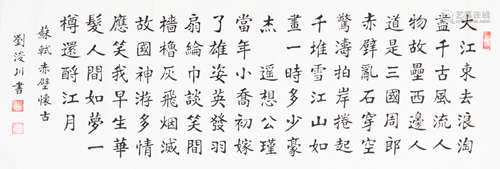 大江東去浪淘
盡千古風流人
物故壘西邊人
道是三國周郎
赤壁亂石穿空
驚濤拍岸捲起
千堆雪江山如
畫一時多少豪
杰遥想公瑾
當年小喬初嫁
了雄姿英發羽
扇綸巾談笑間
檣櫓灰飛烟滅
故國神游多情
應笑我早生華
髮人間如夢一
樽還酹江月
蘇軾赤壁懷古
劉浚川書